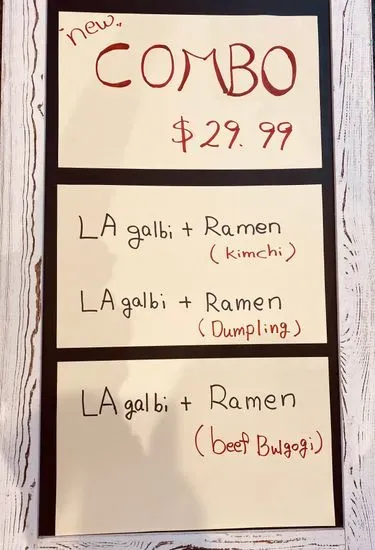 "new"
COMBO
$29.99
LA galbi + Ramen
(kimchi)
LA galbi + Ramen
(Dumpling)
LA galbi + Ramen
(beef Bulgogi)